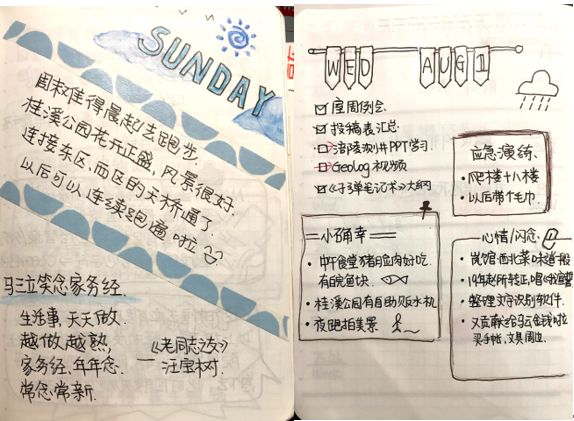 SUNDAY
周末难得晨起去跑步
桂溪公园花开正盛,风景很好.
连接东区、西区的天桥通了
以后可以连续跑遍啦
马三立笑念家务经.
生活事,天天做.
越做越熟,
家务经、年年念.
常念常新.
——《老同志之友》
汪宝树.
WED AUG 1
座周例会
投稿表汇总
涪陵测井PPT学习
GeoLog视频
《子弹笔记术》大纲
应急演练.
·爬楼十八楼
·以后带个毛巾.
=小确幸=
·中午食堂猪肉好吃.
有鱼块.
·桂溪公园有自助贩水机
·夜跑拍美景
心情/闪念
·宾馆西北菜味道
·19年
·整理文字识别软件.
·又贡献给马云金钱啦
买手帐,文具周边.